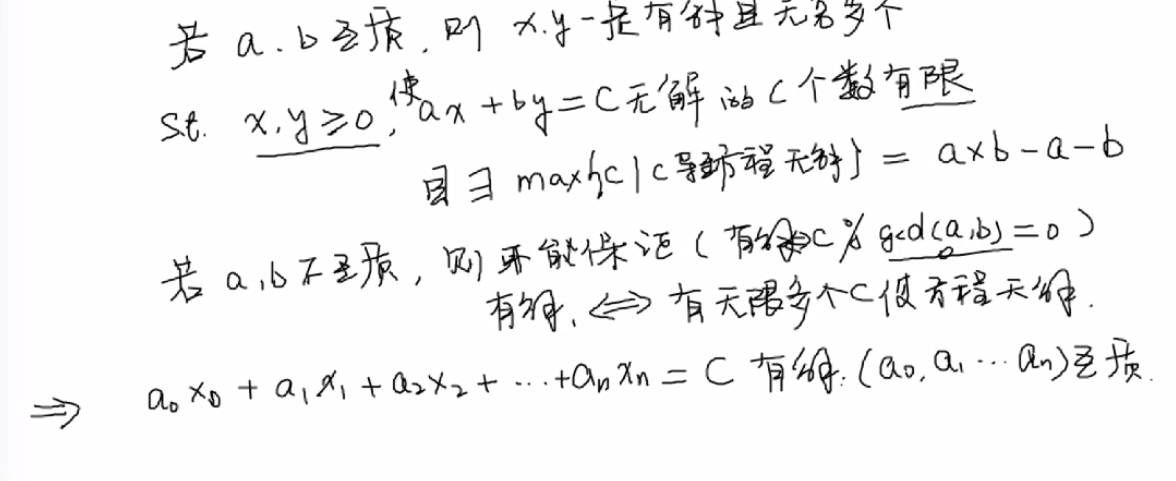 若 a.b互质，则 x.y一定有解且无穷多个
st. x.y≥0，使ax+by=C无解的C个数有限
且∃ max{c|c导致方程无解} = a×b-a-b
若 a,b不互质，则不能保证（有解⇔C % gcd(a,b)=0）
有解，⇔ 有无限多个C使方程无解.
⇒ a₀x₀ + a₁x₁ + a₂x₂ + … + aₙxₙ = C 有解：(a₀, a₁ … aₙ)互质.